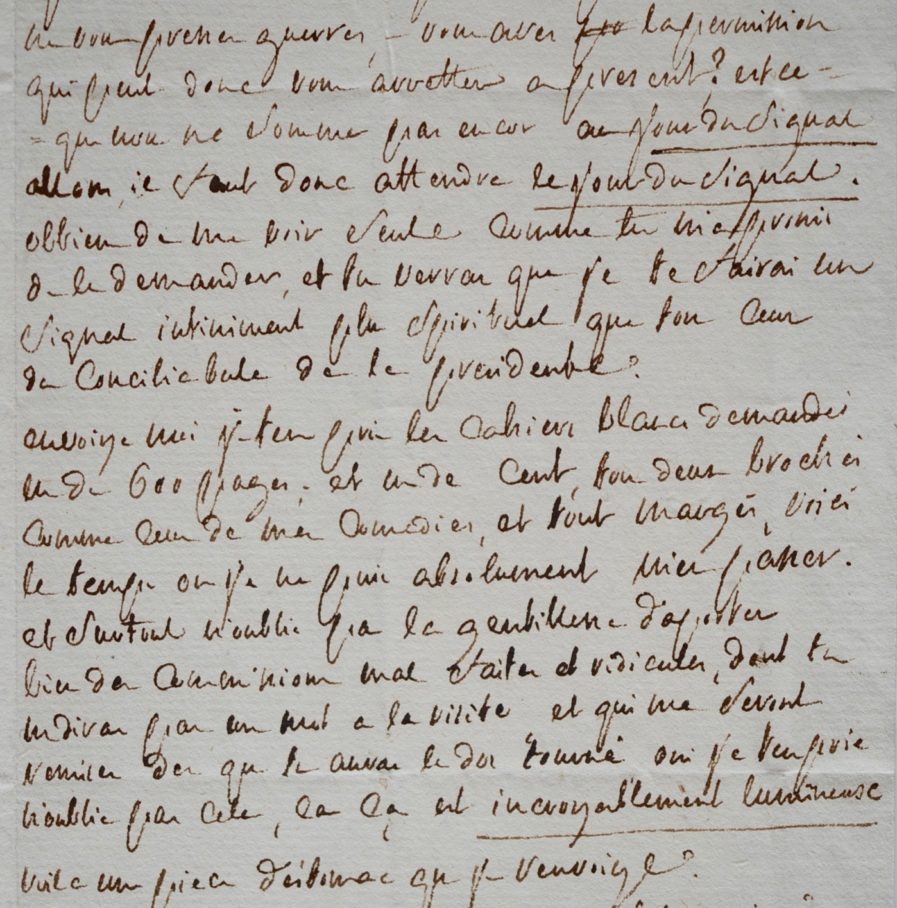 ne vous pressés guerres, – vous aves la permission
qui peut donc vous arretter a present? est ce –
= que nous ne sommes pas encor au jour du signal
allons, il faut donc attendre le jour du signal.
obtien de me voir seule comme tu m'as promis
de le demander, et tu verras que je te fairai un
signal infiniment plus spirituel que tous ceux
du Conciliabule de la presidente.
envoiye moi je t'en prie les cahiers blancs demandés
un de 600 pages, et un de cent, tous deux brochés
comme ceux de mes comedies, et tout margés, voici
le temps ou je ne puis absolument m'en passer.
et surtout n'oublie pas la gentillesse d'aporter
bien des commissions mal faites et ridicules, dont tu
ne diras pas un mot a la visite et qui me seront
remises des que tu auras le dos tourné oui je t'en prie
n'oublie pas cela, ca ça est incroyablement lumineuse
voila un piece d'estomac que je renvoiye.